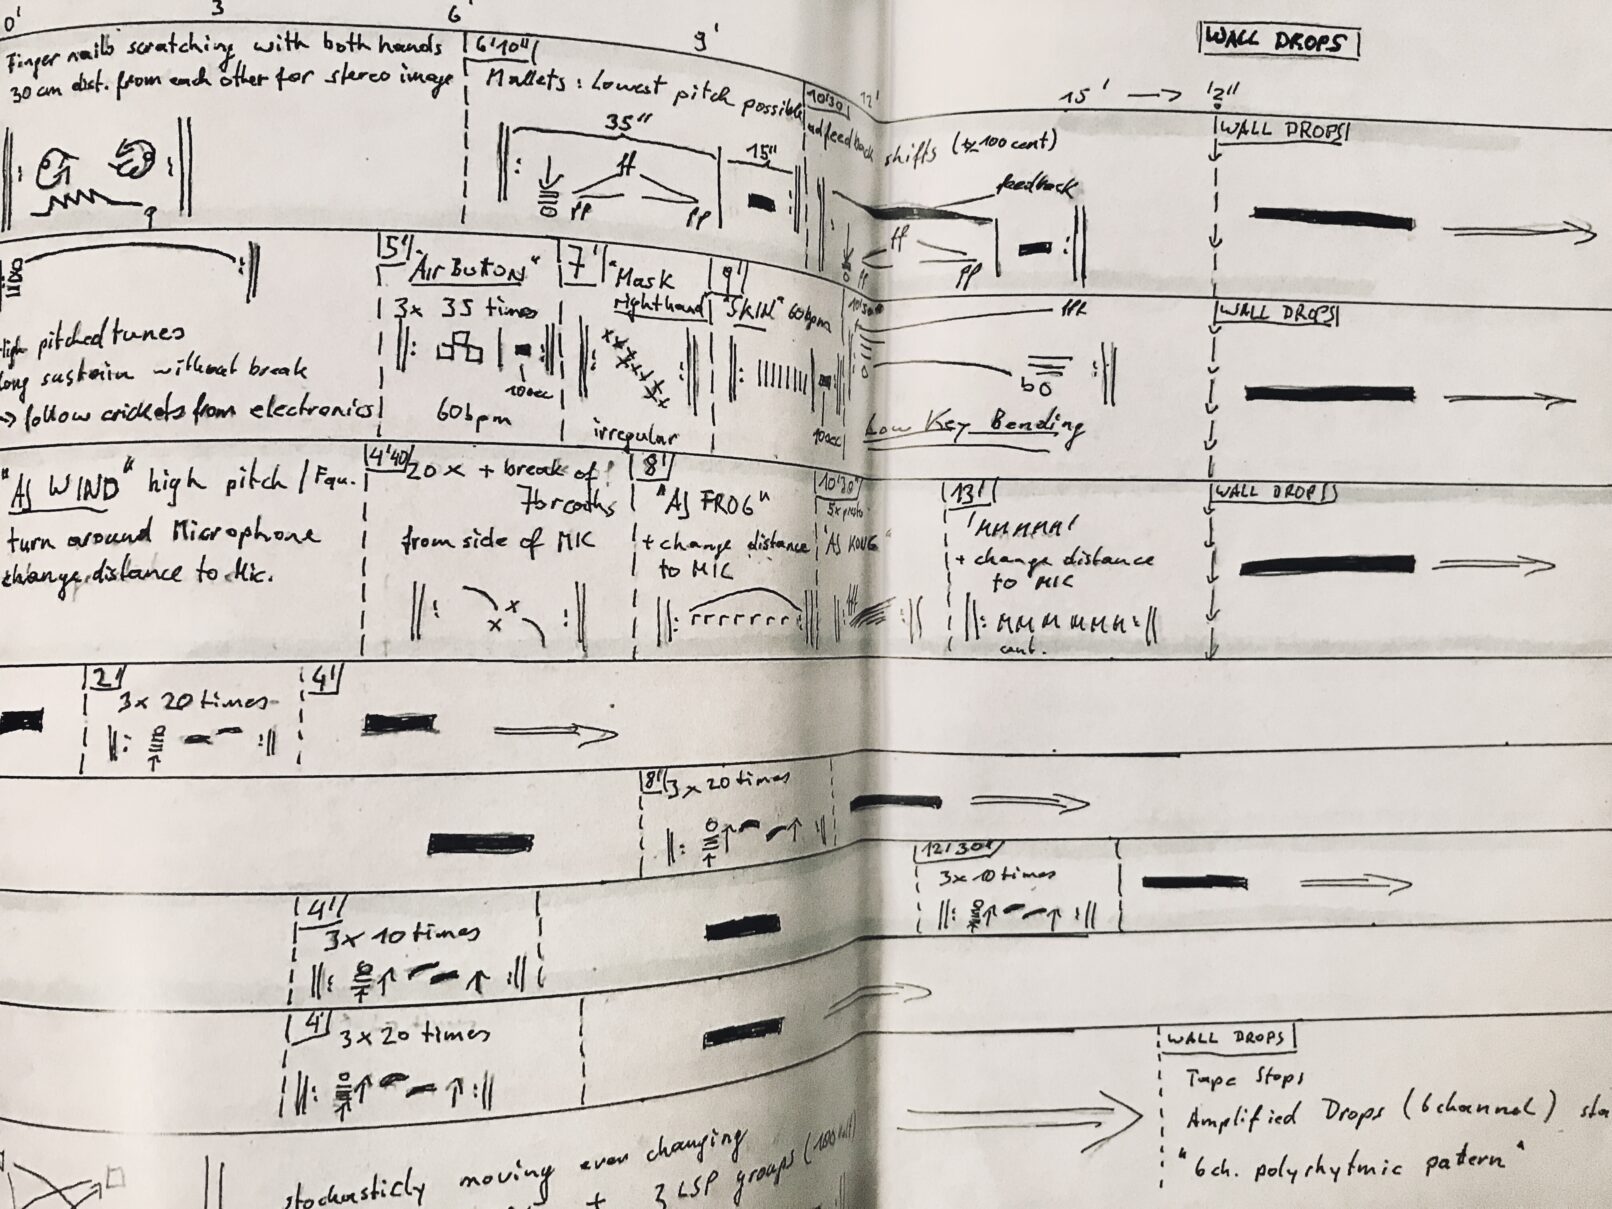 0' 3 6' 9' 12' 15' → '2"
WALL DROPS
Finger nails scratching with both hands
30 cm dist. from each other for stereo image
6'10"
Mallets: Lowest pitch possible
35"
15"
ff
pp pp
10'30
shifts (± 100 cent)
feedback
ff
pp
WALL DROPS
High pitched tunes
long sustain without break
→ follow crickets from electronics
5'
"Air Button"
3x 35 times
10sec
60bpm
7'
"Mask
right hand
irregular
9'
"SKIN" 60bpm
10sec
Low Key Bending
WALL DROPS
"AS WIND" high pitch /
turn around Microphone
change distance to Mic.
4'40
20 x + break of
7 breaths
from side of MIC
8'
"AS FROG"
+ change distance
to MIC
10'30"
13'
+ change distance
to MIC
cont.
WALL DROPS
2'
3x 20 times
4'
8'
3x 20 times
12'30"
3x 10 times
4'
3x 10 times
4'
3x 20 times
WALL DROPS
Tape Stops
Amplified Drops (6 channel)
"6ch. polyrhytmic patern"
stochasticly moving even changing
+ 3 LSP groups